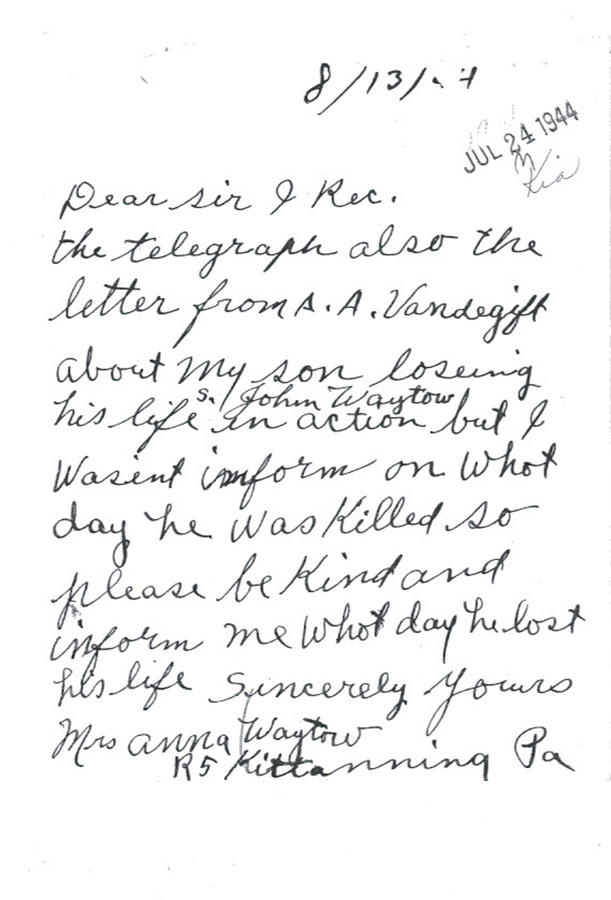 8/13/
JUL 24 1944
Kia
Dear sir I Rec.
the telegraph also the
letter from A. A. Vandegift
about my son loseing
s. John Waytow
his life in action but I
Wasent imform on Whot
day he was Killed so
please be Kind and
inform me Whot day he lost
his life Sincerely Yours
Mrs anna Waytow
R5 Kittanning Pa